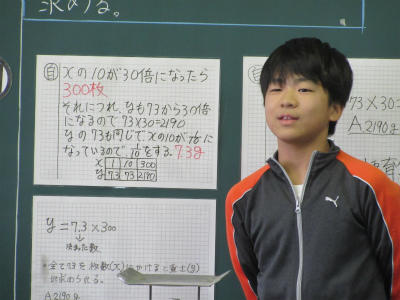 求める。
自
xの10が30倍になったら
300枚
それにつれ、なも73から30倍
になるので73×30=2190
yの73も同じで、xの10が1/10に
なっているので、1/10をする。7.3g
x 1 10 300
y 7.3 73 2190
y=7.3×300
決まった数
全て7.3を枚数(x)にかけると重さ(g)
が求められる。
A.2190g
73×30=
A.2190g
PUMA